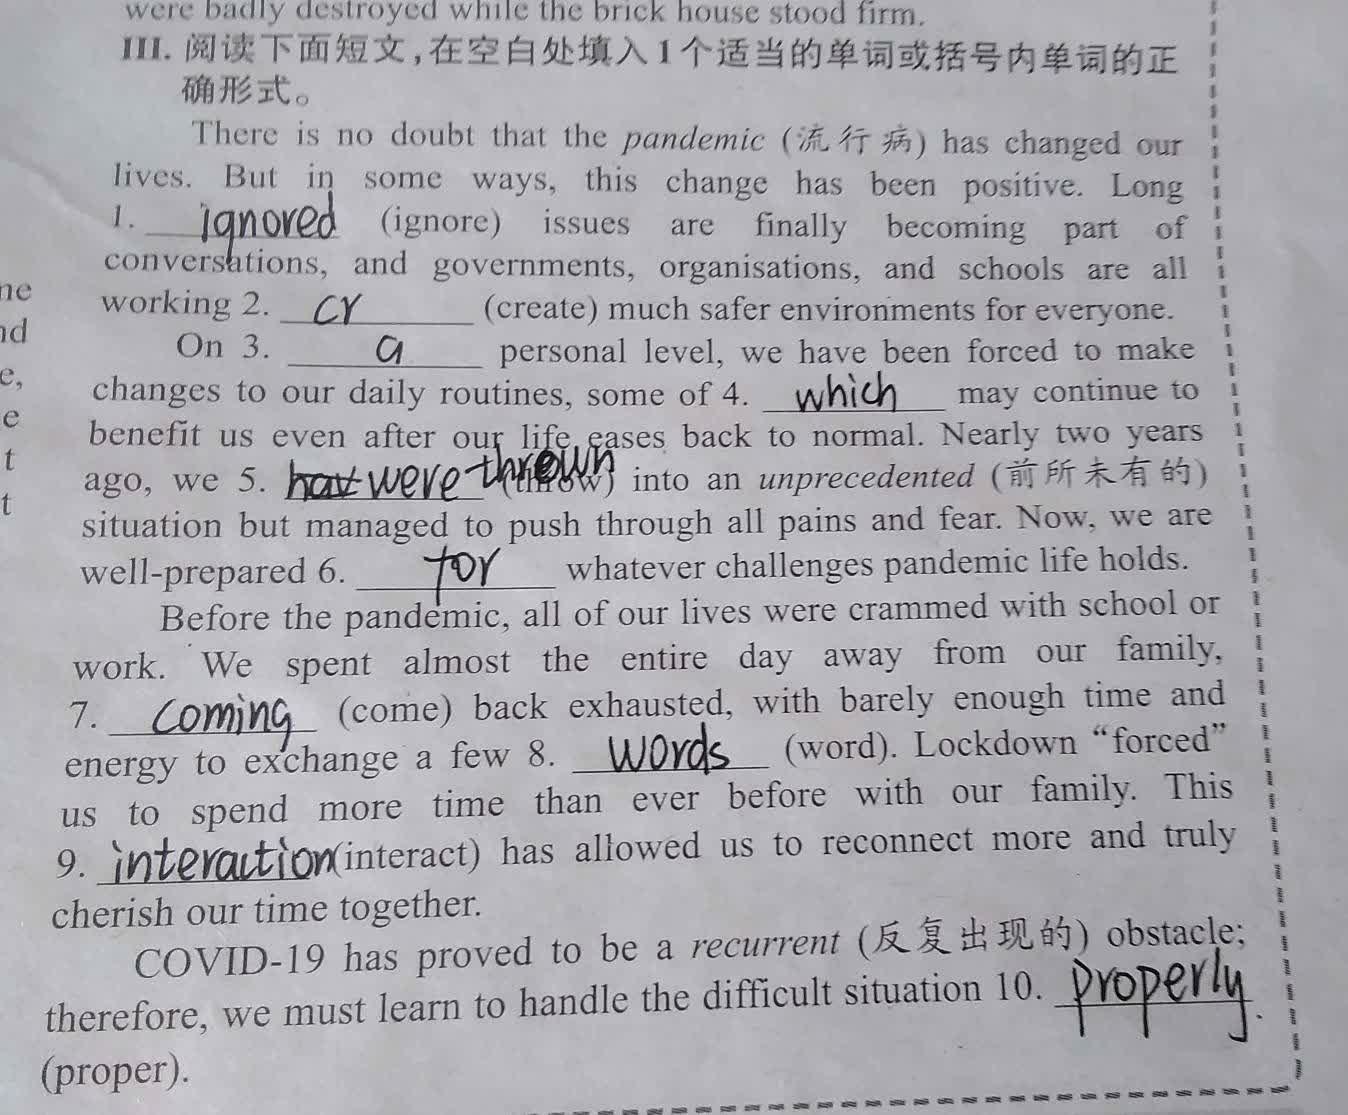 were badly destroyed while the brick house stood firm.
III. 阅读下面短文,在空白处填入1个适当的单词或括号内单词的正
确形式。
There is no doubt that the pandemic (流行病) has changed our
lives. But in some ways, this change has been positive. Long
1. ignored (ignore) issues are finally becoming part of
conversations, and governments, organisations, and schools are all
working 2. cr (create) much safer environments for everyone.
On 3. a personal level, we have been forced to make
changes to our daily routines, some of 4. which may continue to
benefit us even after our life eases back to normal. Nearly two years
ago, we 5. were thrown (throw) into an unprecedented (前所未有的)
situation but managed to push through all pains and fear. Now, we are
well-prepared 6. for whatever challenges pandemic life holds.
Before the pandemic, all of our lives were crammed with school or
work. We spent almost the entire day away from our family,
7. coming (come) back exhausted, with barely enough time and
energy to exchange a few 8. words (word). Lockdown “forced”
us to spend more time than ever before with our family. This
9. interaction (interact) has allowed us to reconnect more and truly
cherish our time together.
COVID-19 has proved to be a recurrent (反复出现的) obstacle;
therefore, we must learn to handle the difficult situation 10. properly.
(proper).
ne
nd
e,
e
t
t